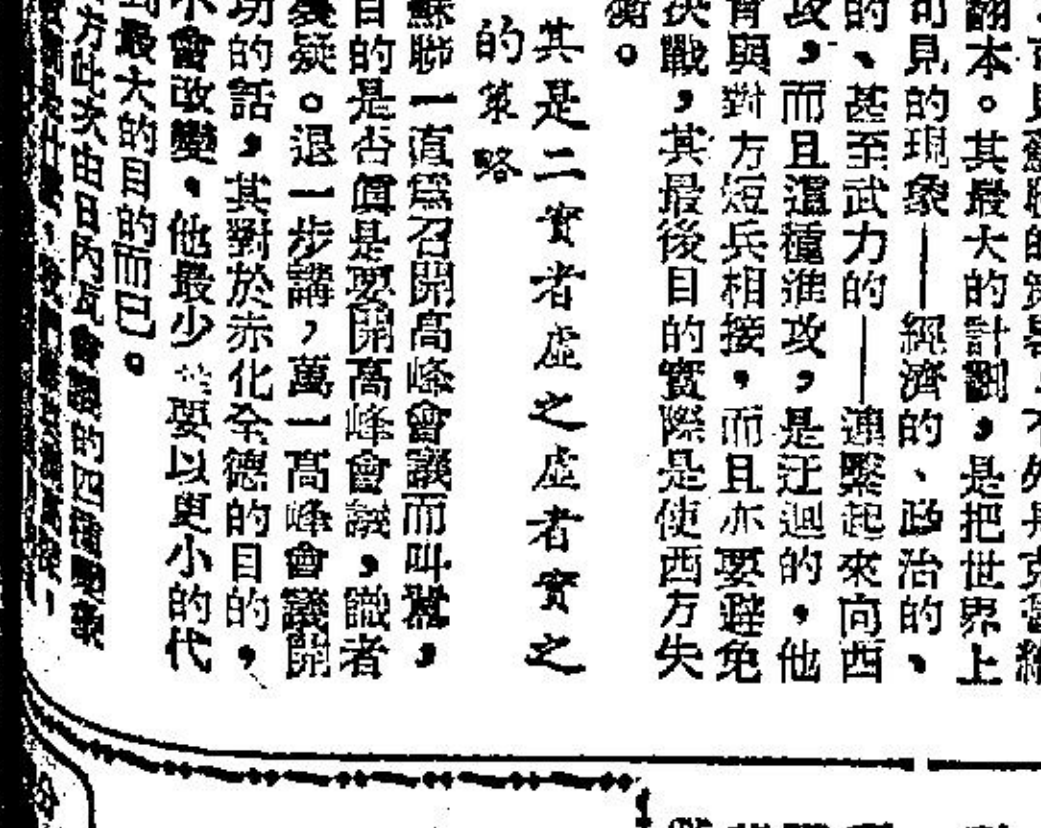 可見蘇聯的
翻本。其最大的計劃,是把世界上
可見的現象——經濟的、政治的、
的、甚至武力的——連繫起來向西
攻,而且這種進攻,是迂迴的,他
育與對方短兵相接,而且亦要避免
決戰,其最後目的實際是使西方失
其是二實者虛之虛者實之
的策略
蘇聯一直爲召開高峰會議而叫囂,
目的是否眞是要開高峰會議,識者
疑。退一步講,萬一高峰會議開
功的話,其對於赤化全德的目的,
不會改變,他最少 要以更小的代
到最大的目的而已。
方此次由日內瓦會議的四